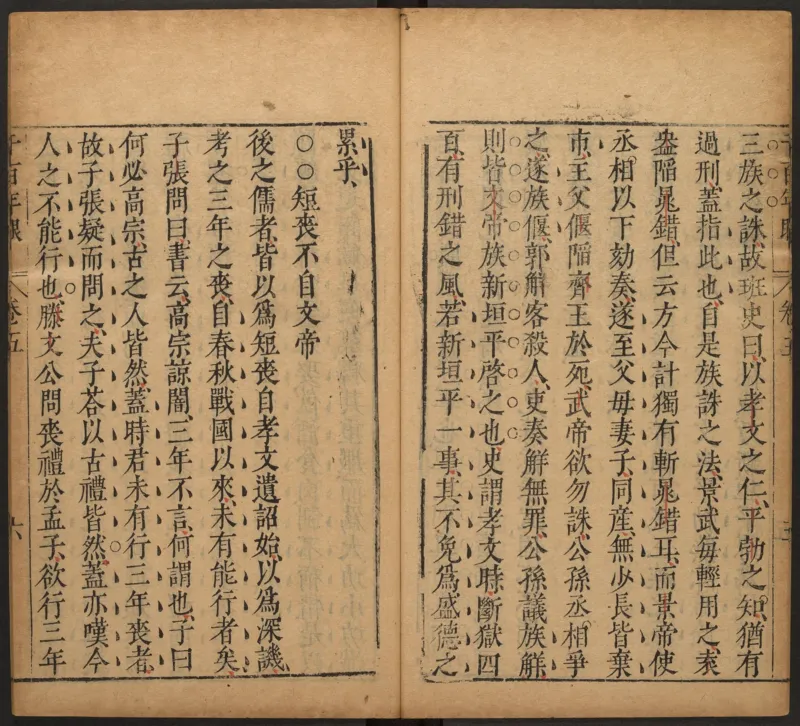 三族之誅故班史曰以孝文之仁平勃之知猶有
過刑蓋指此也自是族誅之法景武每輕用之袁
盎陷晁錯但云方今計獨有斬晁錯耳而景帝使
丞相以下劾奏遂至父毋妻子同産無少長皆棄
市主父偃陷齊王於死武帝欲勿誅公孫丞相爭
之遂族偃郭解客殺人吏奏解無罪公孫議族解
則皆文帝族新垣平啓之也史謂孝文時斷獄四
百有刑錯之風若新垣平一事其不免爲盛德之
累乎
○○短喪不自文帝
後之儒者皆以爲短喪自孝文遺詔始以爲深譏
考之三年之喪自春秋戰國以來未有能行者矣
子張問曰書云高宗諒闇三年不言何謂也子曰
何必高宗古之人皆然蓋時君未有行三年喪者
故子張疑而問之夫子荅以古禮皆然蓋亦嘆今
人之不能行也滕文公問喪禮於孟子欲行三年
千百年眼
卷五
六